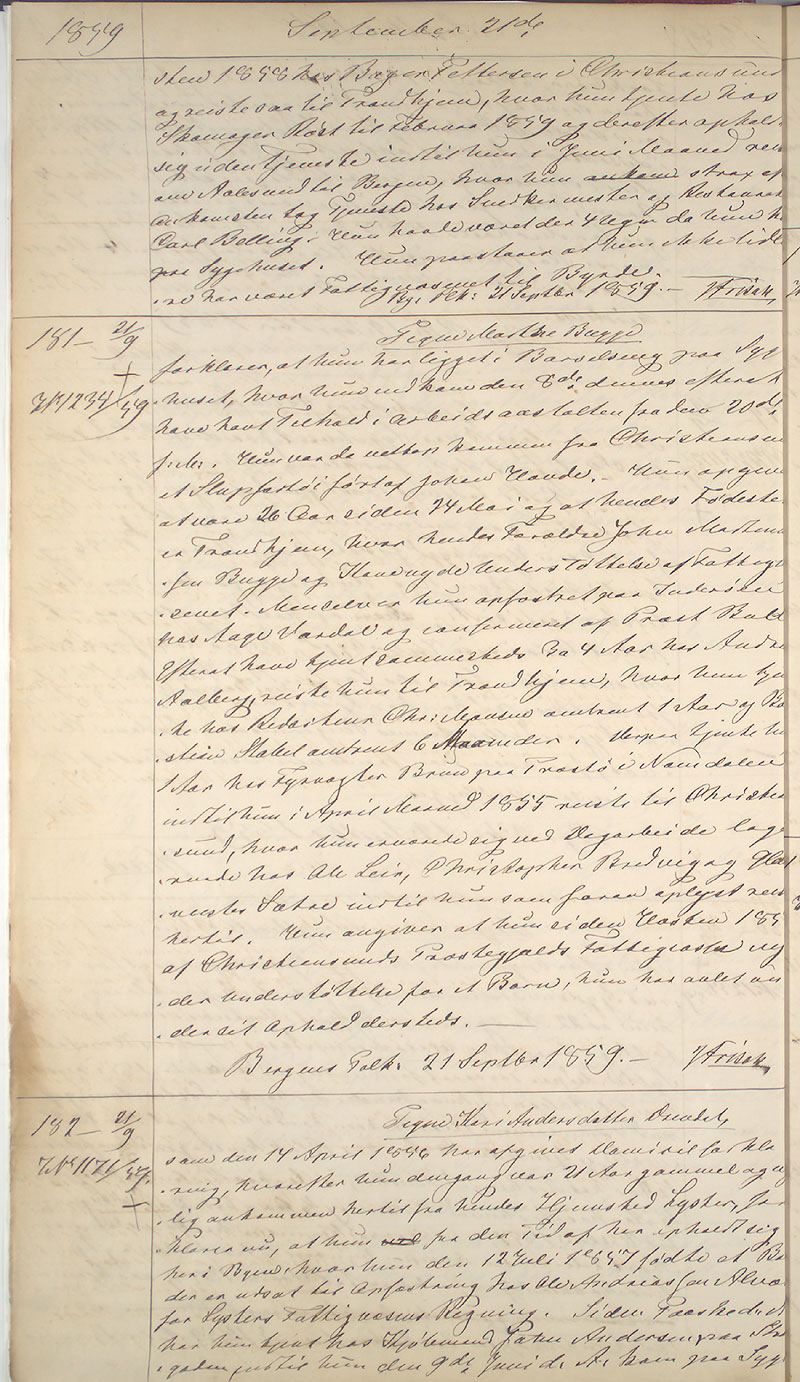 1859 September 21de
sten 1858 hos Bager Pettersen i Christianssund
og reiste saa til Trondhjem, hvor hun tjente hos
Skomager Röst til Februar 1859 og derefter ophold
sig uden Tjeneste indtil hun i Juni Maaned reis
om Aalesund til Bergen, hvor hun ankom strax ef
ankomsten tog Tjeneste hos Snedkermester og Restaurat
Carl Belling. Hun havde været der 4 Uger da hun k
paa Sygehuset. Hun paastaaer at hun ikke tidl
re har været Fattigvæsenet til Byrde.
Bg. Plk: 21 Septbr 1859. — Frisak
181 — 21/9 Pigen Marthe Bugge
forklarer, at hun har ligget i Barselseng paa Syg
huset, hvor hun indkom den 8de dennes efter at
J.N. 1234/59 have havt Tilhold i Arbeidsanstalten fra den 20de
f.M. Hun var da netop kommen fra Christianssu
et Slupfartöi fört af Johan Hovde. — Hun opgiver
at være 26 Aar siden 24 Mai og at hendes Födeste
er Trondhjem, hvor hendes Forældre John Marten
sen Bugge og Kone nyde Understöttelse af Fattigv
senet. Men selv er hun opfostret paa Inderöen
hos Aage Vardal og confirmeret af Præst Bull
Efterat have tjent sammesteds 3 a 4 Aar hos Andr
Aalberg, reiste hun til Trondhjem, hvor hun tjen
te hos Redacteur Chr: Monsen omtrent 1 Aar og
stian Stabel omtrent 6 Maaneder. Derpaa tjente h
1 Aar hos Fyrvogter Bruun paa Præstö i Namdalen
indtil hun i April Maaned 1855 reiste til Christian
sund, hvor hun ernærede sig ved Dagarbeide loge
rende hos Ole Leir, Christopher Bredvig og Glar
mester Sætre indtil hun som foran oplyst reis
hertil. Hun angiver at hun siden Hösten 185
af Christianssunds Præstegjælds Fattigcasse ny
der Understöttelse for et Barn, hun har avlet un
der sit Ophold dersteds. —
Bergens Polk: 21 Septbr 1859. — Frisak
182 — 21/9 Pigen Kari Andersdatter
J.N. 1171/57. som den 14 April 1856 har afgivet Domicilforkla
ring, hvorefter hun dengang var 21 Aar gammel og ny
lig ankommen hertil fra hendes Hjemsted Lyster, for
klarer nu, at hun ved fra den Tid af har opholdt sig
her i Byen hvor hun den 12 Juli 1857 födte et Ba
der er udsat til Opfostring hos Ole Andreas sen
for Lysters Fattigvæsens Regning. Siden Paaske d. A
har hun tjent hos Kjöbmand John Andersen paa Str
gaden indtil hun den 9de Juni d. A. kom paa Syg